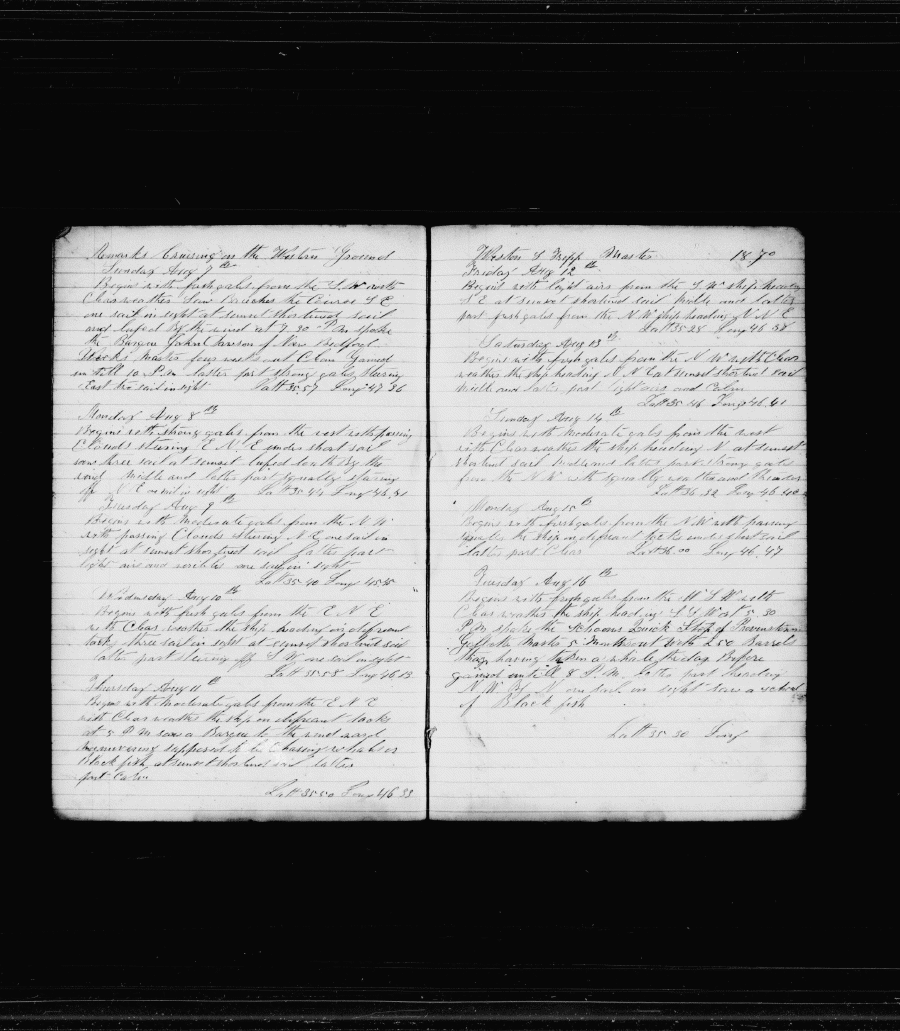 Remarks Cruising on the Western Ground
Sunday Aug 7th
Begins with fresh gales from the S.W. with
Clear weather Saw Finbacks the Course S E
one sail in sight at sunset shortened sail
and luffed by the wind at 7.30 P.M spoke
the Barque John Dawson of New Bedford
master four months out Clean Gamed
untill 10 P.M latter part strong gales stearing
East two sail in sight Latt 35.57 Long 47 36
Monday Aug 8th
Begins with strong gales from the west with passing
Clouds stearing E N E under short sail
saw three sail at sunset luffed South By the
wind middle and latter part squally stearing
off N E one sail in sight Latt 35.44 Long 46.31
Tuesday Aug 9th
Begins with Moderate gales from the N W
with passing Clouds stearing N E one sail in
sight at sunset shortened sail latter part
light airs and variables one sail in sight
Latt 35 40 Long 45 35
Wednesday Aug 10th
Begins with fresh gales from the E N E
with Clear weather the ship heading on difrent
tacks three sail in sight at sunset shortened sail
latter part stearing off S W one sail in sight
Latt 35 58 Long 46 13
Thursday Aug 11th
Begins with Moderate gales from the E N E
with Clear weather the ship on difreant tacks
at 5 P M saw a Barque to the wind ward
supposed to be Chasing whales or
Black fish at sunset shortened sail latter
part Calm
Latt 35 50 Long 46 33
Weston S Tripp Master 1870
Friday Aug 12th
Begins with light airs from the S W ship heading
S E at sunset shortened sail Middle and latter
part fresh gales from the N W ship heading N N E
Latt 35 28 Long 46 38
Saturday Aug 13th
Begins with fresh gales from the N W with Clear
weather the ship heading N N E at sunset shortened sail
middle and latter part light airs and Calm
Latt 35.46 Long 46.41
Sunday Aug 14th
Begins with Moderate gales from the west
with Clear weather the ship heading N at sunset
shortened sail Middle and latter part strong gales
from the N W with squally weather and Thunder
Latt 36.32 Long 46 40
Monday Aug 15th
Begins with fresh gales from the N W with passing
squalls the ship on difreant tacks under short sail
latter part Clear Latt 36.00 Long 46.47
Tuesday Aug 16th
Begins with fresh gales from the W S W with
Clear weather the ship heading S S W at 5 30
P M spoke the Schooner Quick Step of Provincetown
Master 5 Months out with 250 Barrels
Oil having taken a whale the day Before
gamed untill 8 P.M. latter part heading
N W By N one sail in sight saw a school
of Black fish
Latt 35 30 Long